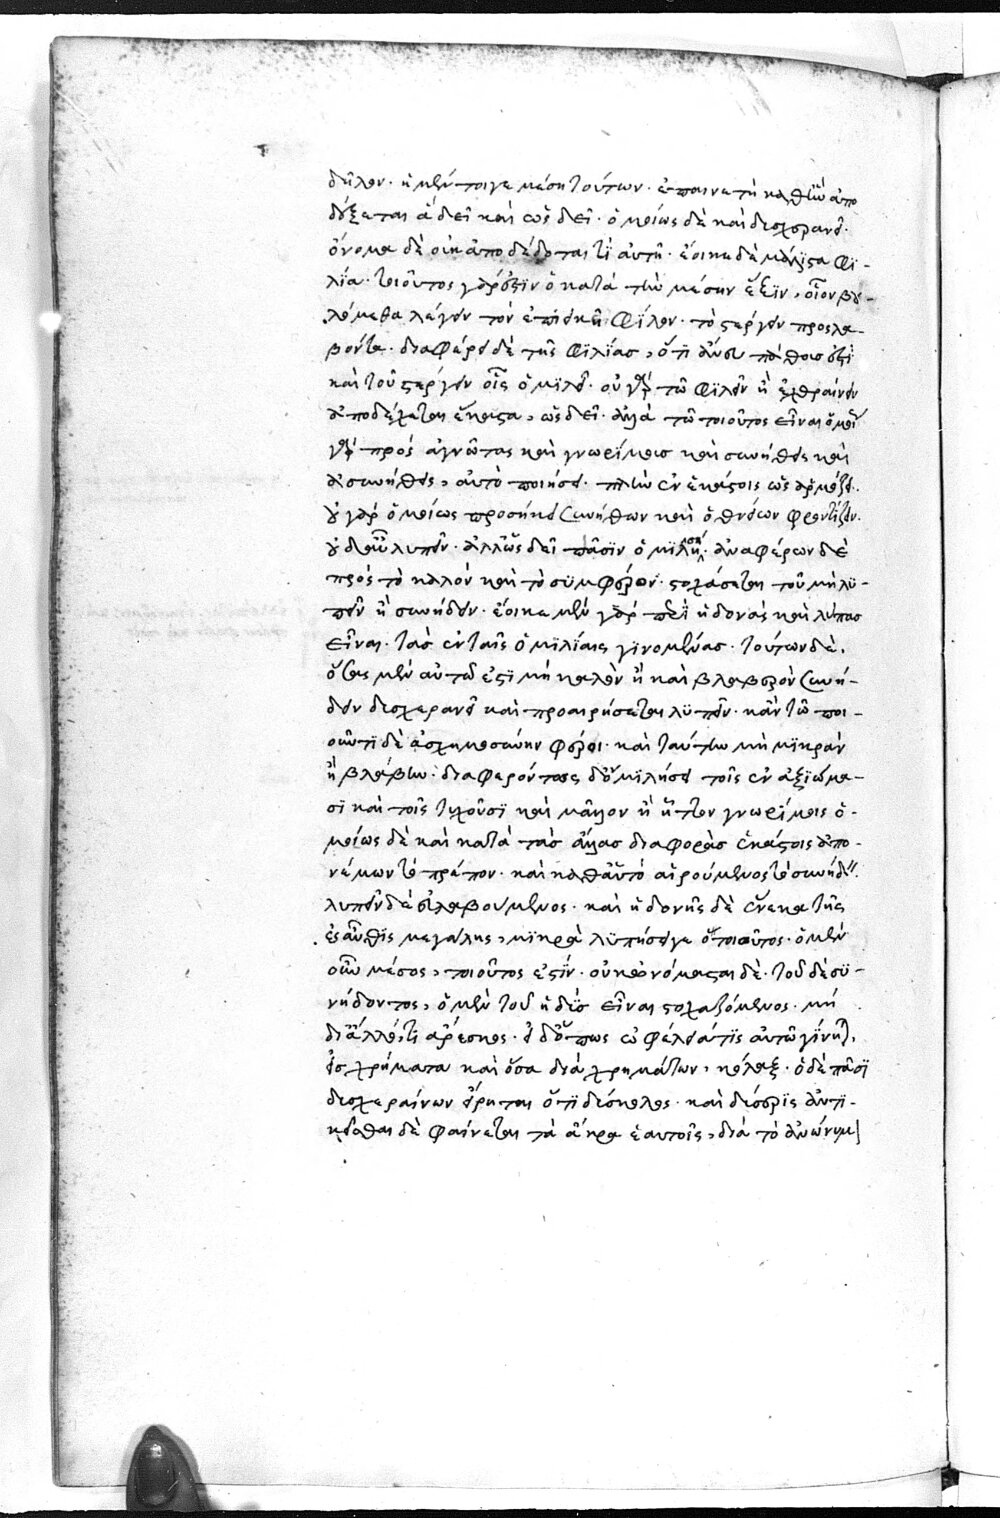 δῆλον· ἡ μὲν τοίγε μέση τούτων· ἐπαινετὴ καθ' ἣν ἀπο
δέξεται ἃ δεῖ καὶ ὡς δεῖ· ὁμοίως δὲ καὶ δυσχερανεῖ·
ὄνομα δὲ οὐκ ἀποδέδοται τὶ αὐτῇ· ἔοικε δὲ μάλιστα φι-
λία· τοιοῦτος γάρ ἐστιν ὁ κατὰ τὴν μέσην ἕξιν, οἷον βου-
λόμεθα λέγειν τὸν ἐπιεικῆ φίλον· τὸ στέργειν προσλα-
βόντα· διαφέρει δὲ τῆς φιλίας, ὅτι ἄνευ πάθους ἐστὶ
καὶ τοῦ στέργειν οἷς ὁμιλεῖ· οὐ γὰρ τῷ φιλεῖν ἢ ἐχθραίνειν
ἀποδέχεται ἕκαστα, ὡς δεῖ· ἀλλὰ τῷ τοιοῦτος εἶναι ὁμοί
γὰρ πρὸς ἀγνῶτας καὶ γνωρίμους καὶ συνήθεις καὶ
ἀσυνήθεις, αὐτὸ ποιήσει· πλὴν ἐν ἑκάστοις ὡς ἁρμόζει·
οὐ γὰρ ὁμοίως προσήκει συνήθων καὶ ὀθνείων φροντίζειν·
οὐδ' αὖ λυπεῖν· ἀλλ' ὡς δεῖ πᾶσιν ὁμιλήσει· ἀναφέρων δὲ
πρὸς τὸ καλὸν καὶ τὸ συμφέρον· στοχάσεται τοῦ μὴ λυ-
πεῖν ἢ συνήδειν· ἔοικε μὲν γὰρ περὶ ἡδονὰς καὶ λύπας
εἶναι· τὰς ἐν ταῖς ὁμιλίαις γινομένας· τούτων δὲ·
ὅσας μὲν αὐτῷ ἐστὶ μὴ καλὸν ἢ καὶ βλαβερὸν συνή-
δειν δυσχερανεῖ καὶ προαιρήσεται λυπεῖν· κἂν τῷ ποι-
οῦντι δὲ ἀσχημοσύνην φέροι· καὶ ταύτην μὴ μικρὰν
ἢ βλάβην· διαφερόντως δ' ὁμιλήσει τοῖς ἐν ἀξιώμα-
σι καὶ τοῖς τυχοῦσι καὶ μᾶλλον ἢ ἧττον γνωρίμοις ὁ-
μοίως δὲ καὶ κατὰ τὰς ἄλλας διαφορὰς ἑκάστοις ἀπο-
νέμων τὸ πρέπον· καὶ καθ' αὑτὸ αἱρούμενος τὸ συνήδειν.
λυπεῖν δὲ εὐλαβούμενος· καὶ ἡδονῆς δὲ ἕνεκα τῆς
ἐσαῦθις μεγάλης, μικρὰ λυπήσει γε ὁ τοιοῦτος· ὁ μὲν
οὖν μέσος, τοιοῦτος ἐστίν· οὐκ ὠνόμασται δὲ· τοῦ δὲ συ-
νήδοντος, ὁ μὲν τοῦ ἡδὺς εἶναι στοχαζόμενος· μὴ
δι' ἄλλό τι ἄρεσκος· ὁ δ' ὅπως ὠφέλειά τις αὐτῷ γίνηται,
εἰς χρήματα καὶ ὅσα διὰ χρημάτων, κόλαξ· ὁ δὲ πᾶσι
δυσχεραίνων εἴρηται ὅτι δύσκολος· καὶ δύσερις ἀντι-
κεῖσθαι δὲ φαίνεται τὰ ἄκρα ἑαυτοῖς, διὰ τὸ ἀνώνυμ